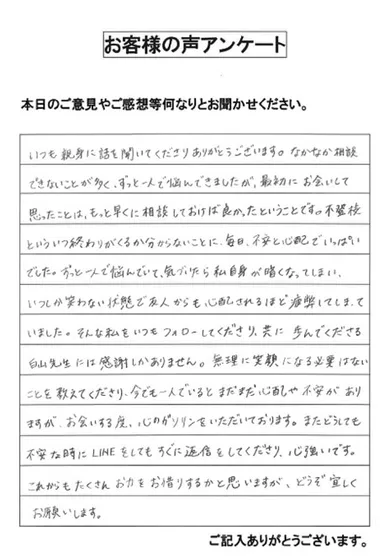 お客様の声アンケート
本日のご意見やご感想等何なりとお聞かせください。
いつも親身に話を聞いてくださりありがとうございます。なかなか相談
できないことが多く、ずっと一人で悩んできましたが、最初にお会いして
思ったことは、もっと早くに相談しておけば良かったということです。不登校
といういつ終わりがくるか分からないことに、毎日、不安と心配でいっぱい
でした。ずっと一人で悩んでいて、気づけたら私自身が暗くなってしまい、
いつしか笑わない状態で友人からも心配されるほど疲弊してしまって
いました。そんな私をいつもフォローしてくださり、共に歩んでくださる
白山先生には感謝しかありません。無理に笑顔になる必要はない
ことを教えてくださり、今でも一人でいるとまだまだ心配や不安があり
ますが、お会いする度、心のガソリンをいただいております。またどうしても
不安な時にLINEをしてもすぐに返信をしてくださり、心強いです。
これからもたくさんお力をお借りするかと思いますが、どうぞ宜しく
お願いします。
ご記入ありがとうございます。